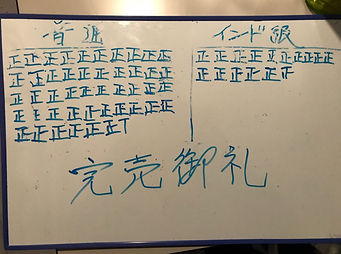 普通
インド級
正正正正正正正正正
正正正正正正正正正
正正正正正正正正正
正正正正正正正正正
正正正正正正T
正正正正正正正正正
正正正正正正
完売御礼